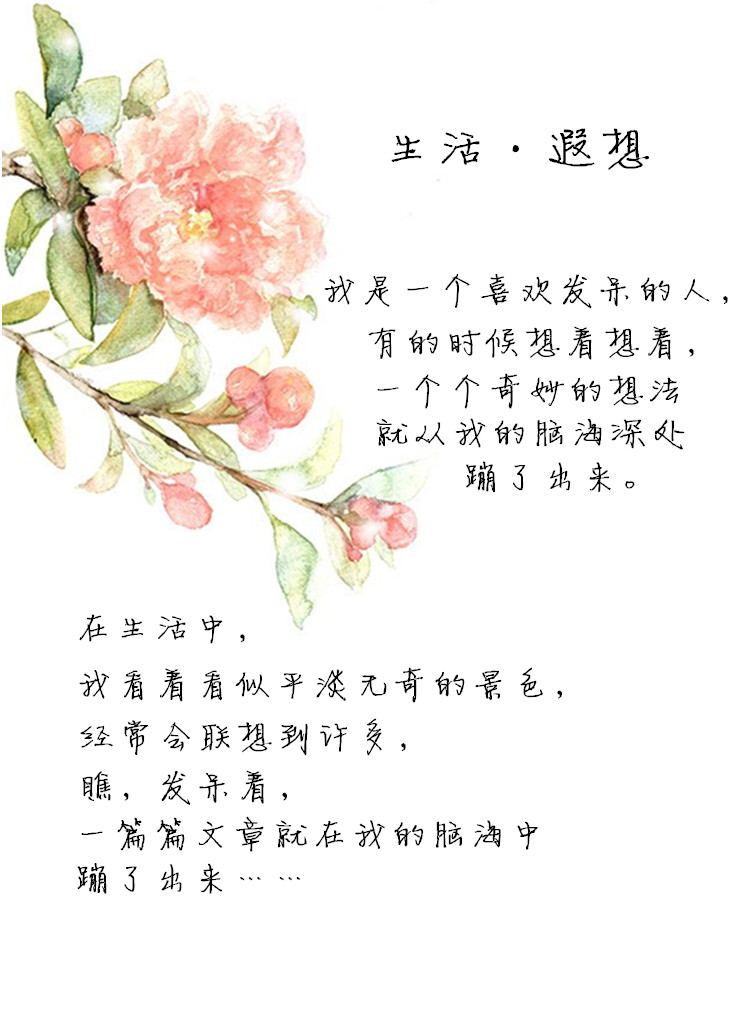 生活·遐想
我是一个喜欢发呆的人，
有的时候想着想着，
一个个奇妙的想法
就从我的脑海深处
蹦了出来。
在生活中，
我看着看似平淡无奇的景色，
经常会联想到许多，
瞧，发呆着，
一篇篇文章就在我的脑海中
蹦了出来……